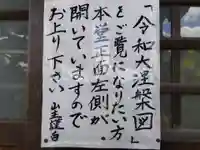 「令和大涅槃図」
をご覧になりたい方
本堂正面左側が
開いていますので
お上り下さい